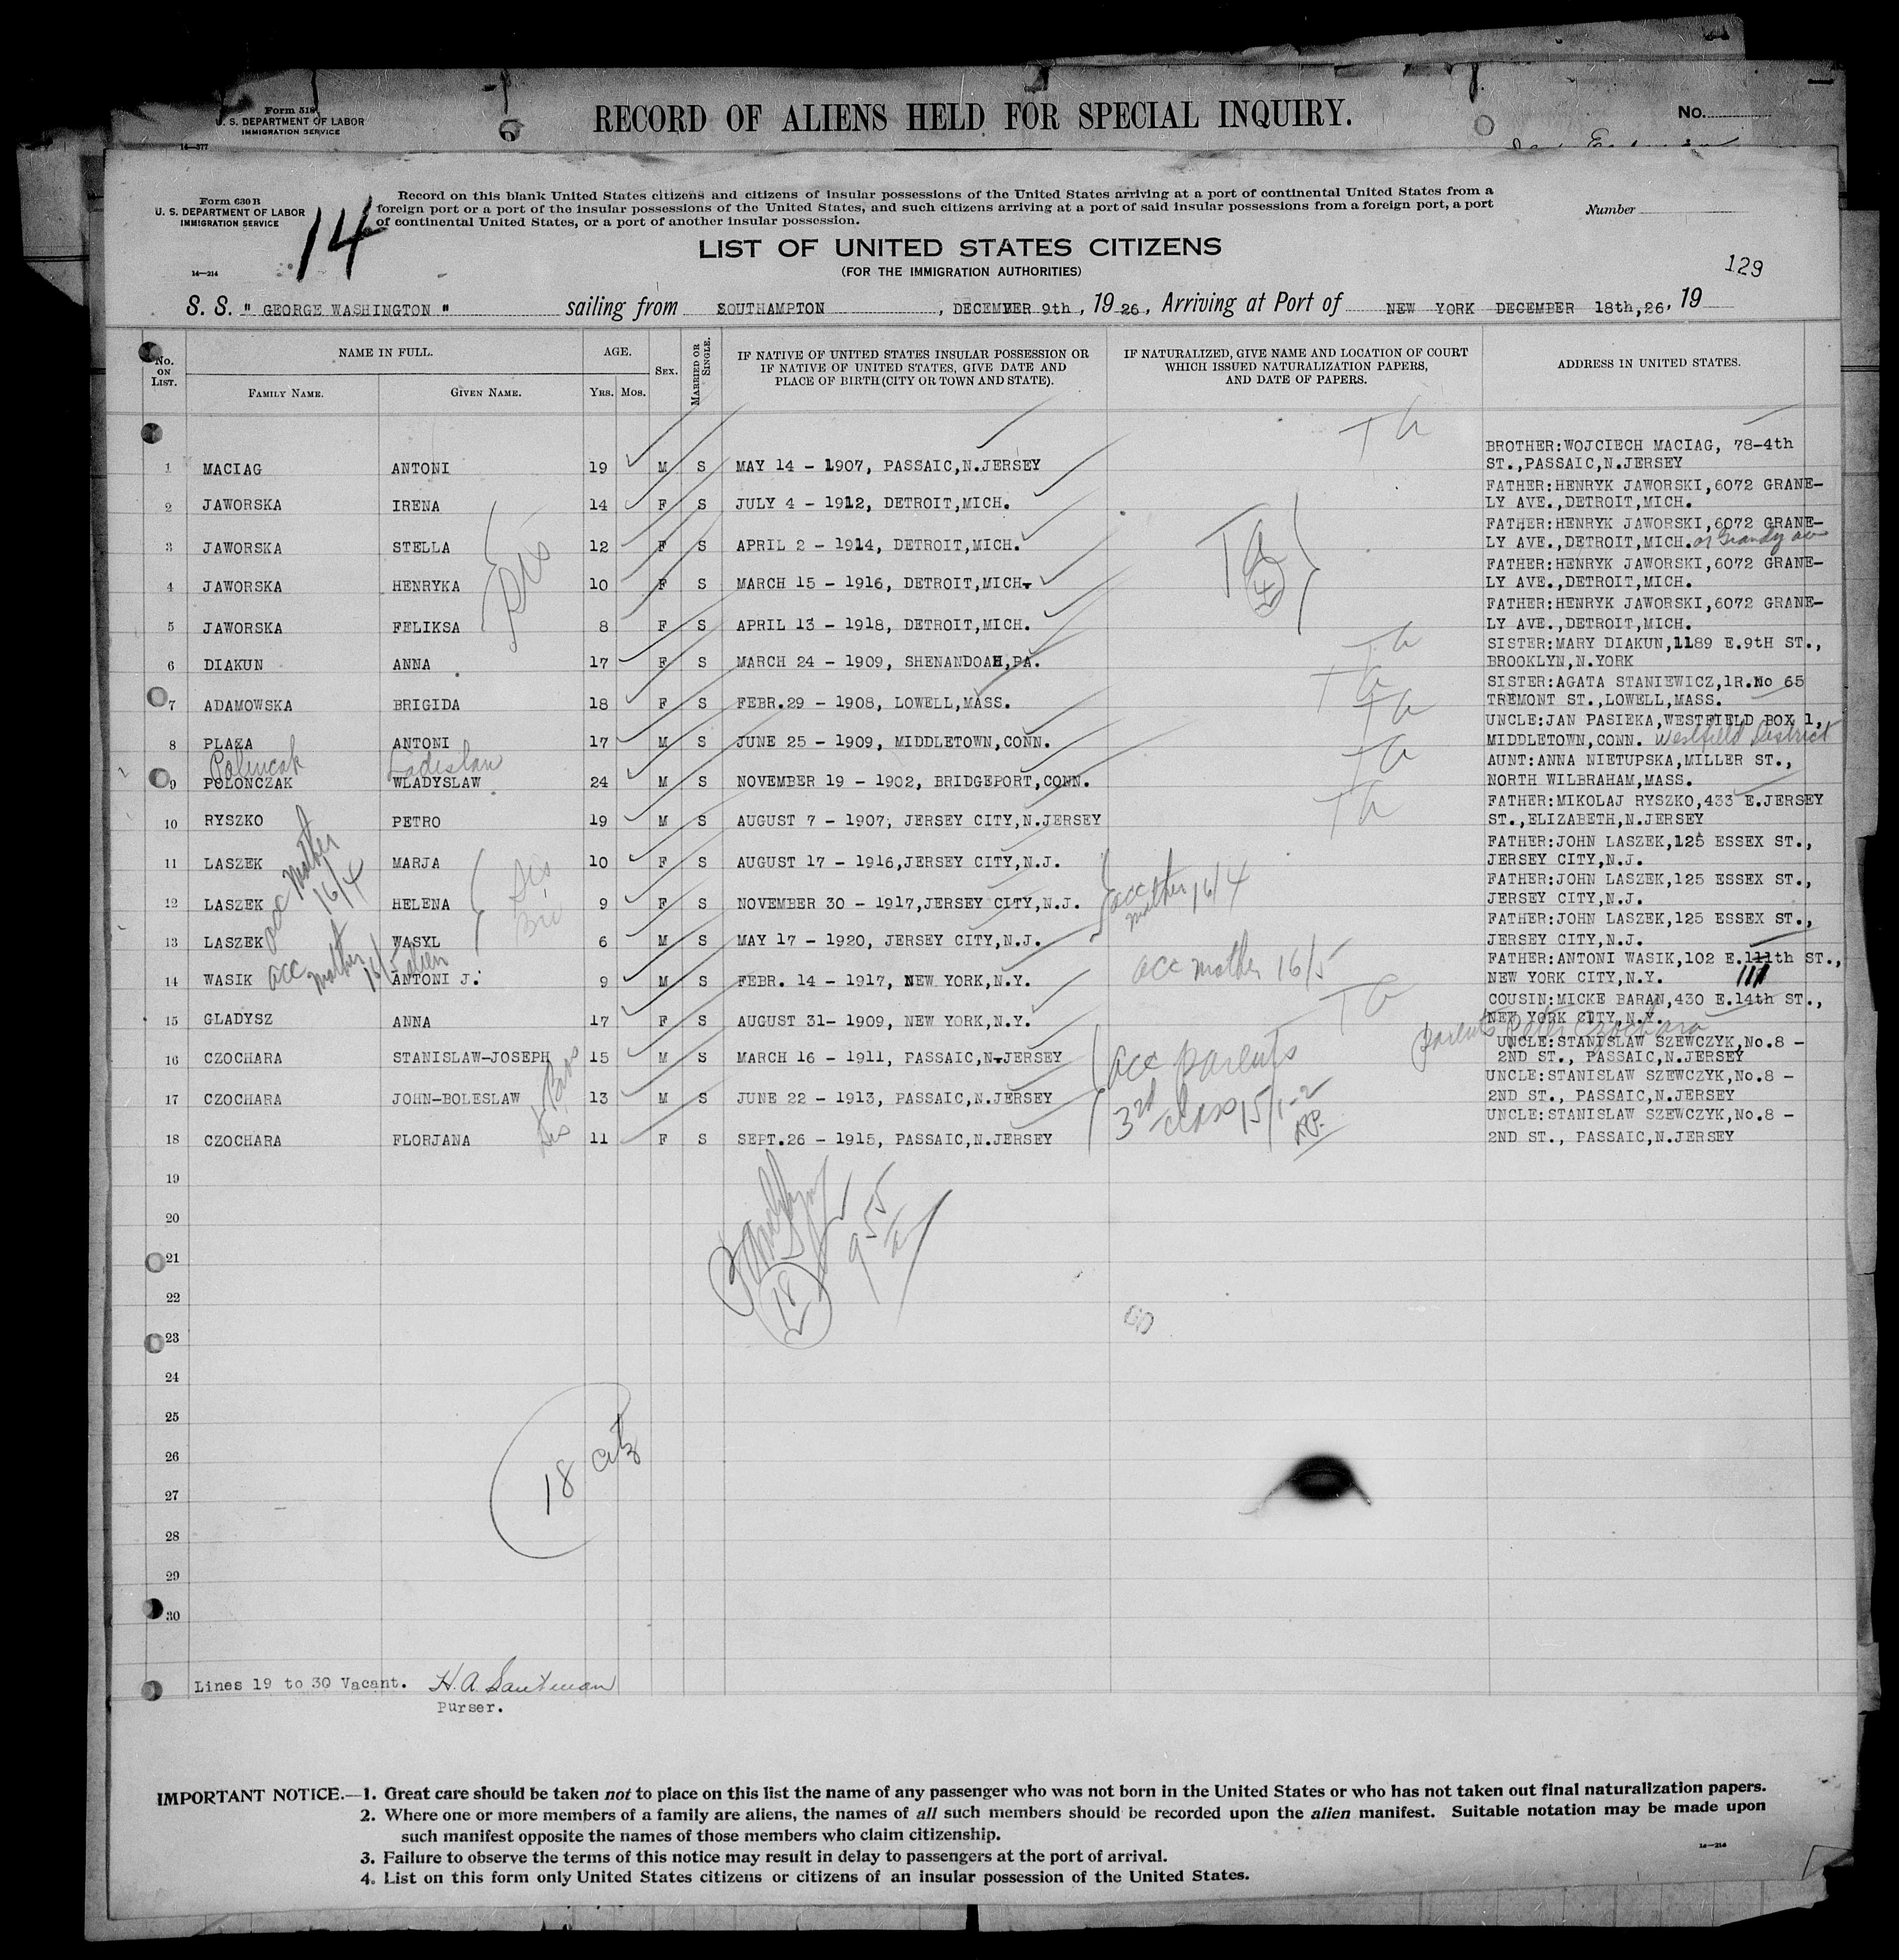 Form 518
U. S. DEPARTMENT OF LABOR
IMMIGRATION SERVICE
14—577
RECORD OF ALIENS HELD FOR SPECIAL INQUIRY.
No.
Form 630 B
U. S. DEPARTMENT OF LABOR
IMMIGRATION SERVICE
14
Record on this blank United States citizens and citizens of insular possessions of the United States arriving at a port of continental United States from a
foreign port or a port of the insular possessions of the United States, and such citizens arriving at a port of said insular possessions from a foreign port, a port
of continental United States, or a port of another insular possession.
Number
LIST OF UNITED STATES CITIZENS
(FOR THE IMMIGRATION AUTHORITIES)
14—214
129
S. S. " GEORGE WASHINGTON " sailing from SOUTHAMPTON , DECEMVER 9th , 19 26, Arriving at Port of NEW YORK DECEMBER 18th,26, 19
No. ON LIST.
NAME IN FULL.
FAMILY NAME.
GIVEN NAME.
AGE.
YRS. MOS.
SEX.
MARRIED OR SINGLE.
IF NATIVE OF UNITED STATES INSULAR POSSESSION OR
IF NATIVE OF UNITED STATES, GIVE DATE AND
PLACE OF BIRTH (CITY OR TOWN AND STATE).
IF NATURALIZED, GIVE NAME AND LOCATION OF COURT
WHICH ISSUED NATURALIZATION PAPERS,
AND DATE OF PAPERS.
ADDRESS IN UNITED STATES.
BROTHER:WOJCIECH MACIAG, 78-4th
1 MACIAG ANTONI 19 M S MAY 14 - 1907, PASSAIC,N.JERSEY ST.,PASSAIC,N.JERSEY
FATHER:HENRYK JAWORSKI,6072 GRANE-
2 JAWORSKA IRENA 14 F S JULY 4 - 1912, DETROIT,MICH. LY AVE.,DETROIT,MICH.
FATHER:HENRYK JAWORSKI,6072 GRANE-
3 JAWORSKA STELLA 12 F S APRIL 2 - 1914, DETROIT,MICH. LY AVE.,DETROIT,MICH. or Grandy ave
FATHER:HENRYK JAWORSKI,6072 GRANE-
4 JAWORSKA HENRYKA 10 F S MARCH 15 - 1916, DETROIT,MICH. LY AVE.,DETROIT,MICH.
FATHER:HENRYK JAWORSKI,6072 GRANE-
5 JAWORSKA FELIKSA 8 F S APRIL 13 - 1918, DETROIT,MICH. LY AVE.,DETROIT,MICH.
SISTER:MARY DIAKUN,1189 E.9tH ST.,
6 DIAKUN ANNA 17 F S MARCH 24 - 1909, SHENANDOAH,PA. BROOKLYN,N.YORK
SISTER:AGATA STANIEWICZ,1R.No 65
7 ADAMOWSKA BRIGIDA 18 F S FEBR.29 - 1908, LOWELL,MASS. TREMONT ST.,LOWELL,MASS.
UNCLE:JAN PASIEKA,WESTFIELD BOX 1,
8 PLAZA ANTONI 17 M S JUNE 25 - 1909, MIDDLETOWN,CONN. MIDDLETOWN,CONN. Westfield District
Polincak Ladislaw
AUNT:ANNA NIETUPSKA,MILLER ST.,
9 POLONCZAK WLADYSLAW 24 M S NOVEMBER 19 - 1902, BRIDGEPORT,CONN. NORTH WILBRAHAM,MASS.
FATHER:MIKOLAJ RYSZKO,433 E.JERSEY
10 RYSZKO PETRO 19 M S AUGUST 7 - 1907, JERSEY CITY,N.JERSEY ST.,ELIZABETH,N.JERSEY
FATHER:JOHN LASZEK,125 ESSEX ST.,
11 LASZEK MARJA 10 F S AUGUST 17 - 1916,JERSEY CITY,N.J. JERSEY CITY,N.J.
acc Mother 16/4
Sis
acc mother 16/4
FATHER:JOHN LASZEK,125 ESSEX ST.,
12 LASZEK HELENA 9 F S NOVEMBER 30 - 1917,JERSEY CITY,N.J. JERSEY CITY,N.J.
FATHER:JOHN LASZEK,125 ESSEX ST.,
13 LASZEK WASYL 6 M S MAY 17 - 1920, JERSEY CITY,N.J. JERSEY CITY,N.J.
acc mother 16/5 alien
acc mother 16/5
FATHER:ANTONI WASIK,102 E.111th ST.,
14 WASIK ANTONI J. 9 M S FEBR. 14 - 1917, NEW YORK,N.Y. NEW YORK CITY,N.Y. 111
COUSIN:MICKE BARAN,430 E.14th ST.,
15 GLADYSZ ANNA 17 F S AUGUST 31- 1909, NEW YORK,N.Y. NEW YORK CITY,N.Y.
parents Peter Czochara
UNCLE:STANISLAW SZEWCZYK,No.8 -
16 CZOCHARA STANISLAW-JOSEPH 15 M S MARCH 16 - 1911, PASSAIC,N.JERSEY 2ND ST., PASSAIC,N.JERSEY
acc parents
3rd class 15/1-2
UNCLE:STANISLAW SZEWCZYK,No.8 -
17 CZOCHARA JOHN-BOLESLAW 13 M S JUNE 22 - 1913, PASSAIC,N.JERSEY 2ND ST., PASSAIC,N.JERSEY
UNCLE:STANISLAW SZEWCZYK,No.8 -
18 CZOCHARA FLORJANA 11 F S SEPT.26 - 1915, PASSAIC,N.JERSEY 2ND ST., PASSAIC,N.JERSEY
19
20
21
22
18
23
24
25
26
18 citz
27
28
29
30
Lines 19 to 30 Vacant. H. A.
Purser.
IMPORTANT NOTICE.—1. Great care should be taken not to place on this list the name of any passenger who was not born in the United States or who has not taken out final naturalization papers.
2. Where one or more members of a family are aliens, the names of all such members should be recorded upon the alien manifest. Suitable notation may be made upon
such manifest opposite the names of those members who claim citizenship.
3. Failure to observe the terms of this notice may result in delay to passengers at the port of arrival.
4. List on this form only United States citizens or citizens of an insular possession of the United States.
14—214